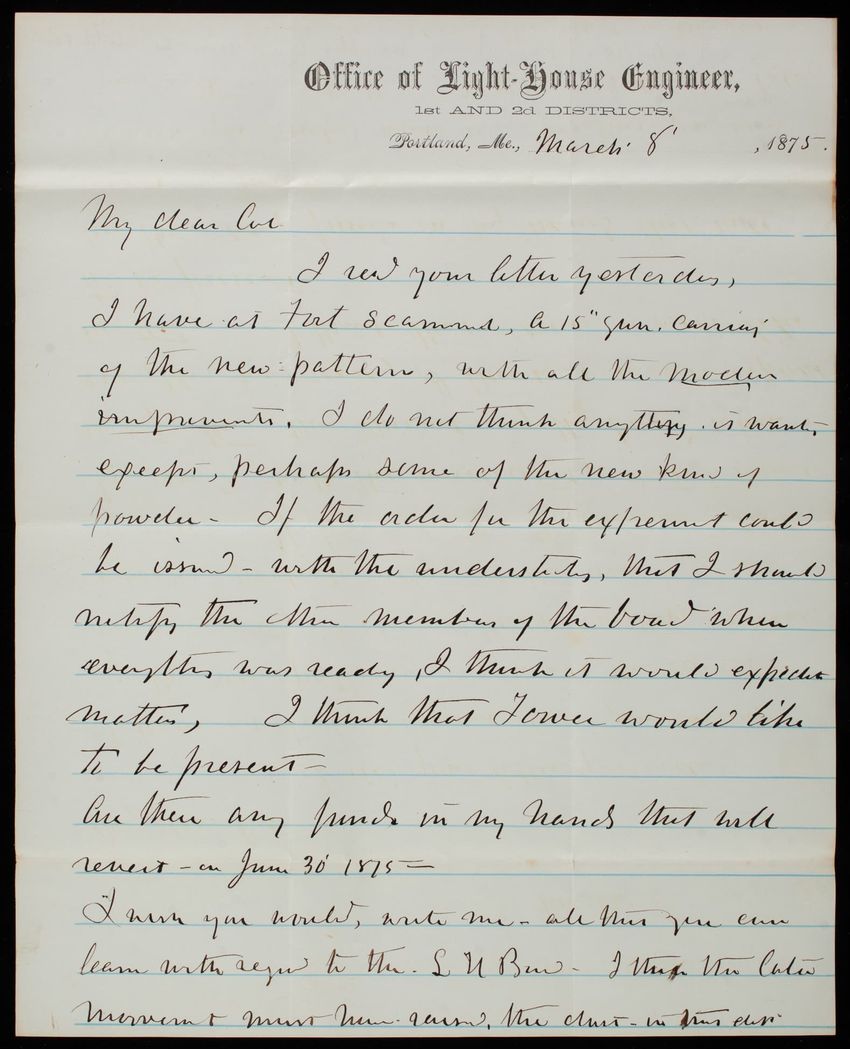 Office of Light-House Engineer,
1st AND 2d DISTRICTS,
Portland, Me., March 8' , 1875.
My dear Col
I recd your letter yesterday,
I have at Fort Scammel, a 15" gun. carriage
of the new pattern, with all the modern
improvements. I do not think anything is wanted
except, perhaps some of the new kind of
powder - If the order for the experiment could
be issued - with the understanding, that I should
notify the other members of the board when
everything was ready, I think it would expedite
matters, I think that Tower would like
to be present -
Are there any funds in my hands that will
revert - on June 30' 1875 -
I wish you would, write me - all that you can
learn with regard to the L H Board - I think the late
movement must have raised, the dust - in that